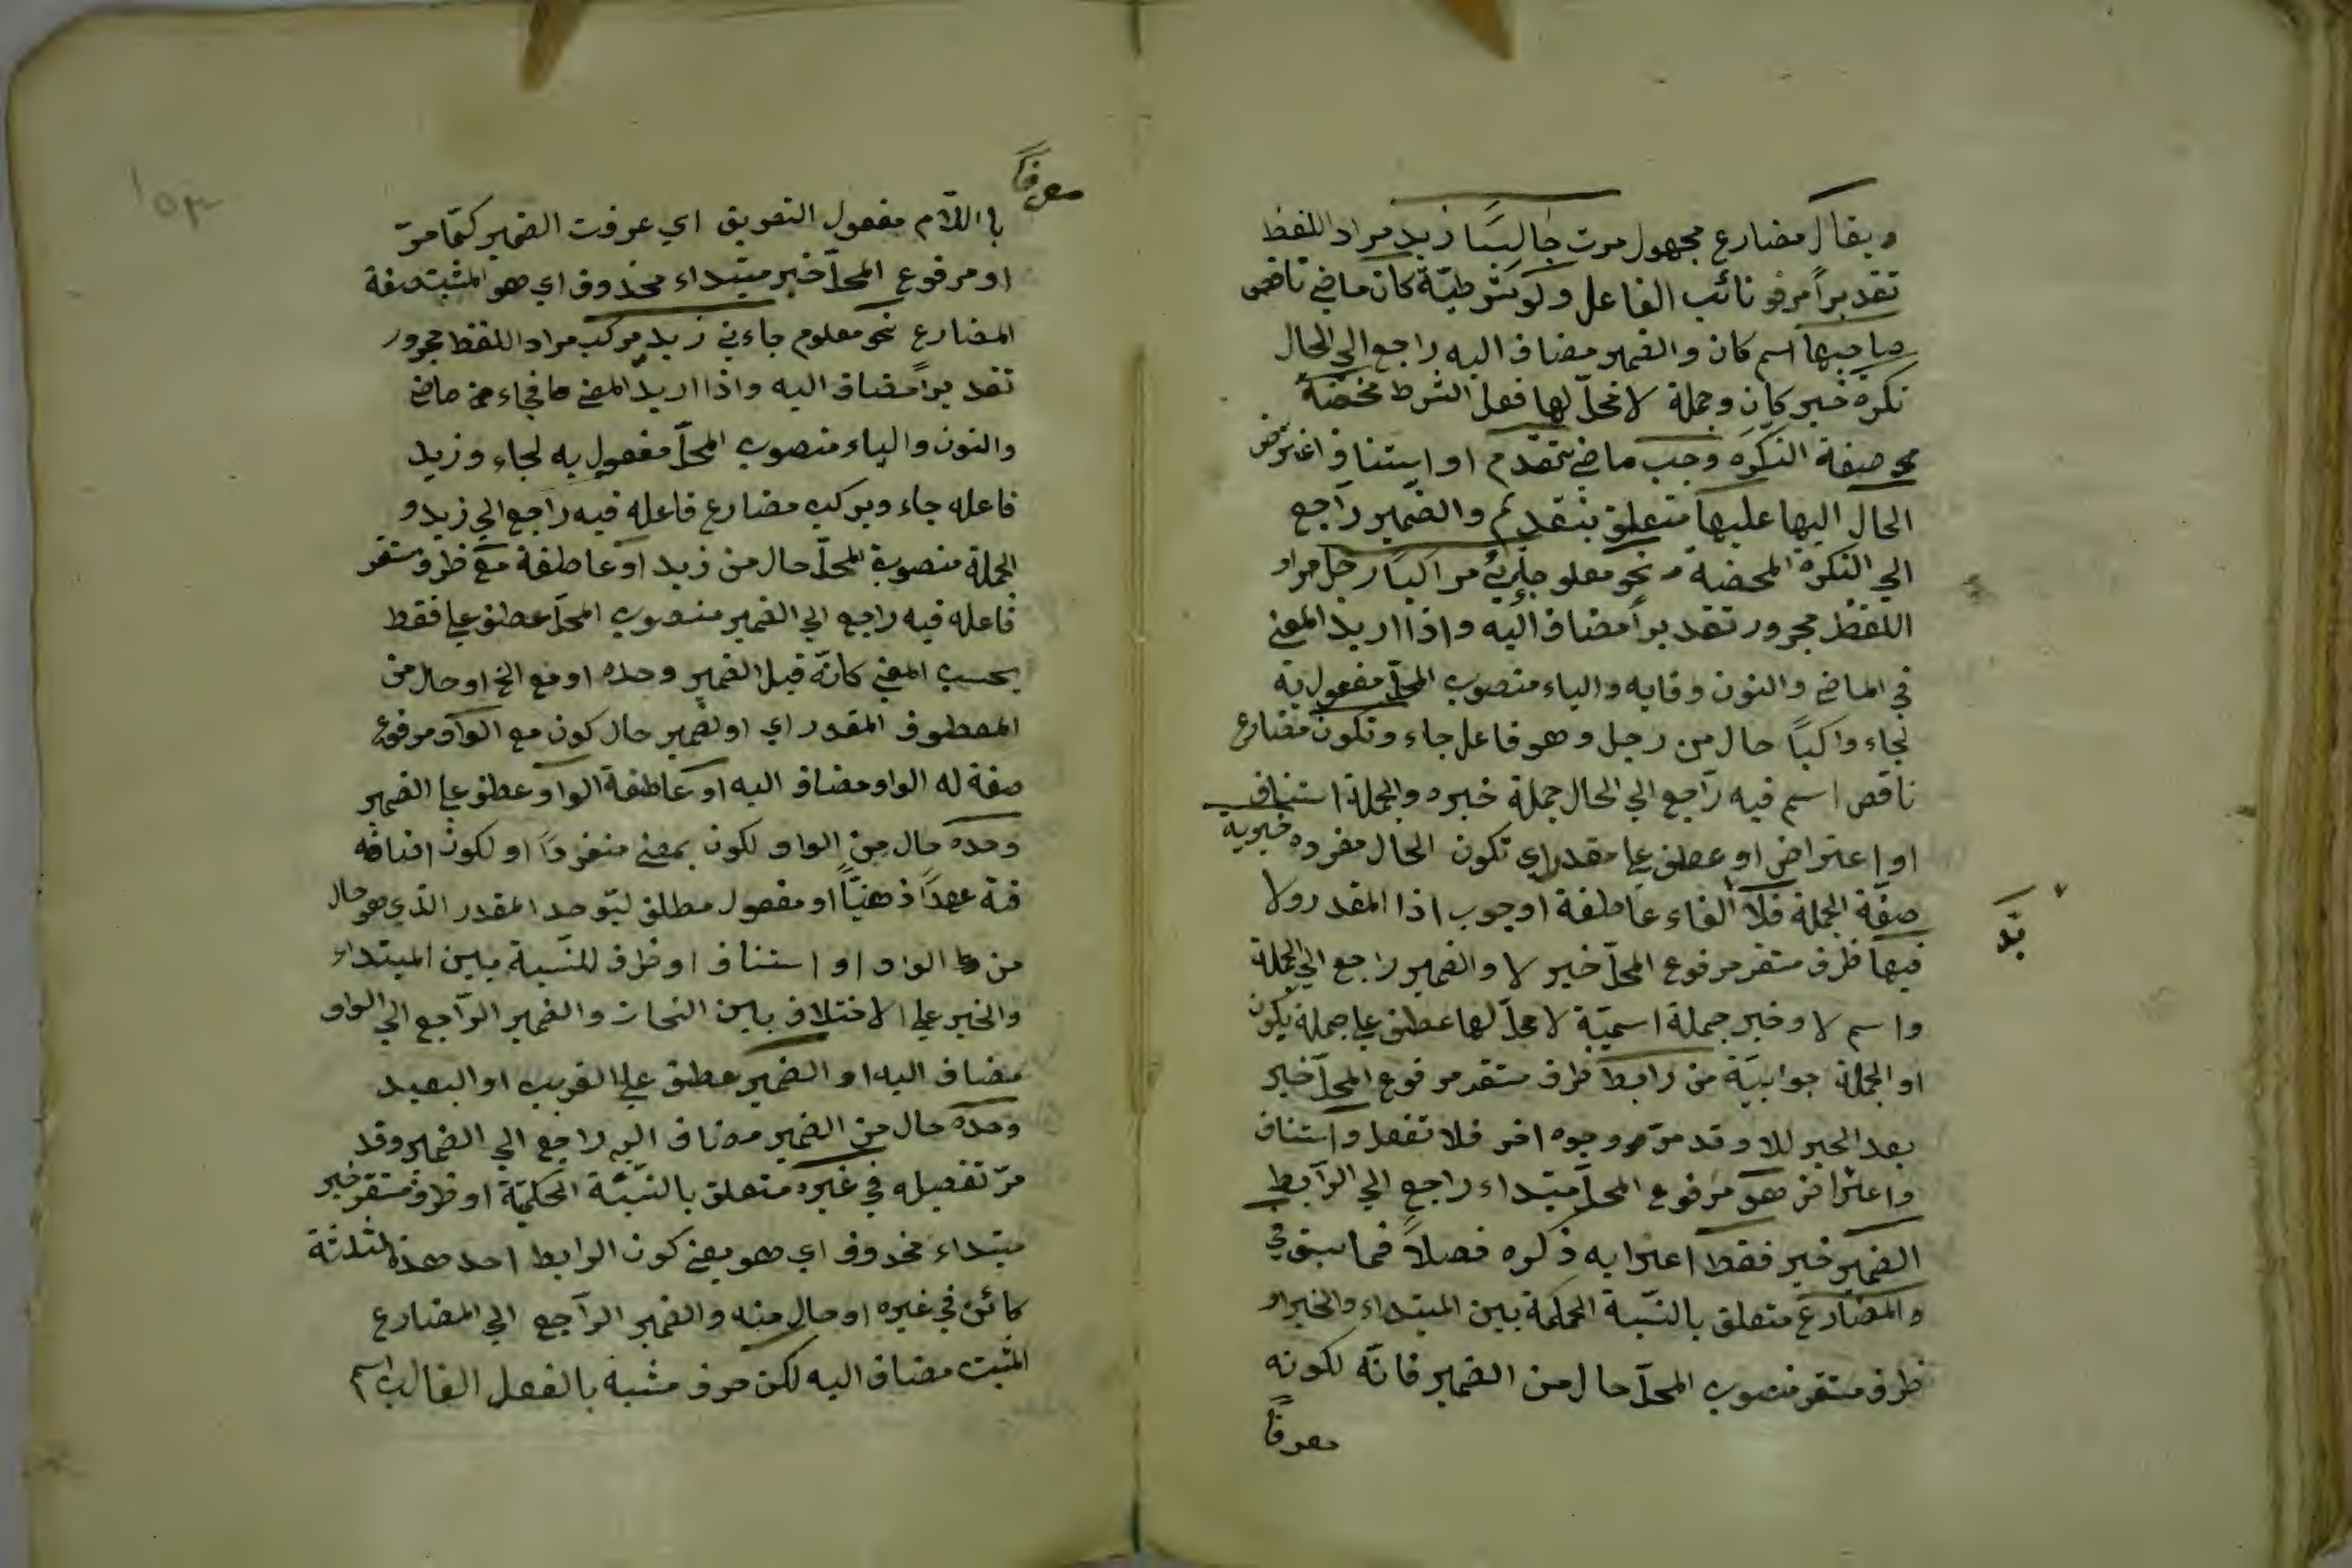 ويقال مضارع مجهول مرت جالسا زيد مراد اللفظ
تقديراً مرفو نائب الفاعل ولو شرطيّة كان ماضي ناقص
صاحبها اسم كان والضمير مضاف اليه راجع الي الحال
نكرة خبر كان وجملة لا محلّ لها فعل الشرط محضة
صفة النكرة وجب ماضي تقدم او استناف اعتراض
الحال اليها عليها متعلق بتقديم والضمير راجع
الي النكرة المحضة نحو معلو جاءني راكبا رجل مراد
اللفظ مجرور تقديراً مضاف اليه واذا اريد المعني
في الماضي والنون وقايه والياء منصوب المحلّ مفعول به
لجاء راكباً حال من رجل وهو فاعل جاء وتكون مضارع
ناقص اسم فيه راجع الي الحال جملة خبره والجملة استناف
او اعتراض او عطف علي مقدر اي تكون الحال مفرده خبريه
صفة الجملة فلا الفاء عاطفة او جواب اذا المقدر ولا
بدّ
فيها ظرف مستقر مرفوع المحلّ خبر لا والضمير راجع الي الجملة
واسم لا وخبر جملة اسميّة لا محلّ لها عطف علي جملة يكون
او الجملة جوابيّة من رابط ظرف مستقر مرفوع المحلّ خبر
بعد الخبر للا وقد مرّ وجوه اخر فلا تغفل واستناف
واعتراض هو مرفوع المحلّ مبتداء راجع الي الرّابط
الضمير خبر فقط اعرابه ذكره فصلاً فما سبق في
والمضارع متعلق بالنّسبة الحكمية بين المبتداء والخبر او
ظرف مستقر منصوب المحلّ حال من الضمير فانّه لكونه
معرفاً
معرفاً
باللّام مفعول التعريف اي عرفت الضمير كما مرّ
او مرفوع المحلّ خبر مبتداء محذوف اي هو المثبت صفة
المضارع نحو معلوم جاءني زيد يركب مراد اللفظ مجرور
تقديراً مضاف اليه واذا اريد المعني فجاء ماضي
والنون والياء منصوب المحلّ مفعول به لجاء وزيد
فاعله جاء ويركب مضارع فاعله فيه راجع الي زيد و
الجملة منصوبة المحلّ حال من زيد او عاطفة مع ظرف مستقر
فاعله فيه راجع الي الضمير منصوب المحلّ عطف علي فقط
بحسب المعني كانّه قيل الضمير وحده او مع الخ او حال من
المعطوف المقدر اي او الضمير حال كون مع الواو مرفوع
صفة له الواو مضاف اليه او عاطفة الواو عطف علي الضمير
وحده حال من الواو لكون بمعني منفرداً او لكون اضافة
عهداً ذهنيّاً او مفعول مطلق ليتوحد المقدر الذي هو حال
من الواو او استناف او ظرف للنّسبة بين المبتداء
والخبر علي الاختلاف بين النحات والضمير الرّاجع الي الواو
مضاف اليه او الضمير عطف علي القريب او البعيد
وحده حال من الضمير مضاف اليه راجع الي الضمير وقد
مرّ تفصيله في غيره متعلق بالنّسبة الحكميّة او ظرف مستقر خبر
مبتداء محذوف اي هو يعني كون الرابط احد هذه الثلثة
كائن في غيره او حال منه والضمير الرّاجع الي المضارع
المثبت مضاف اليه لكن حرف مشبه بالفعل الغالب اسم